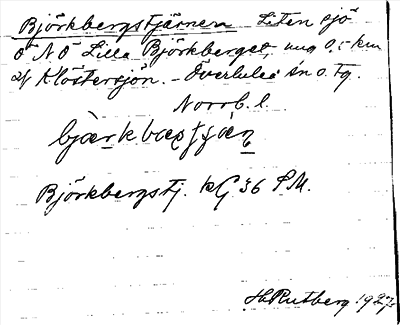 Björkbergstjärnen Liten sjö
Ö N Ö Lilla Björkberget, ung 0,5 km
Klöstersjön. - Överluleå sn o. tg.
Norrb. l.
Björkbergstj. kG 36 S.M.
H. Rutberg 1927.